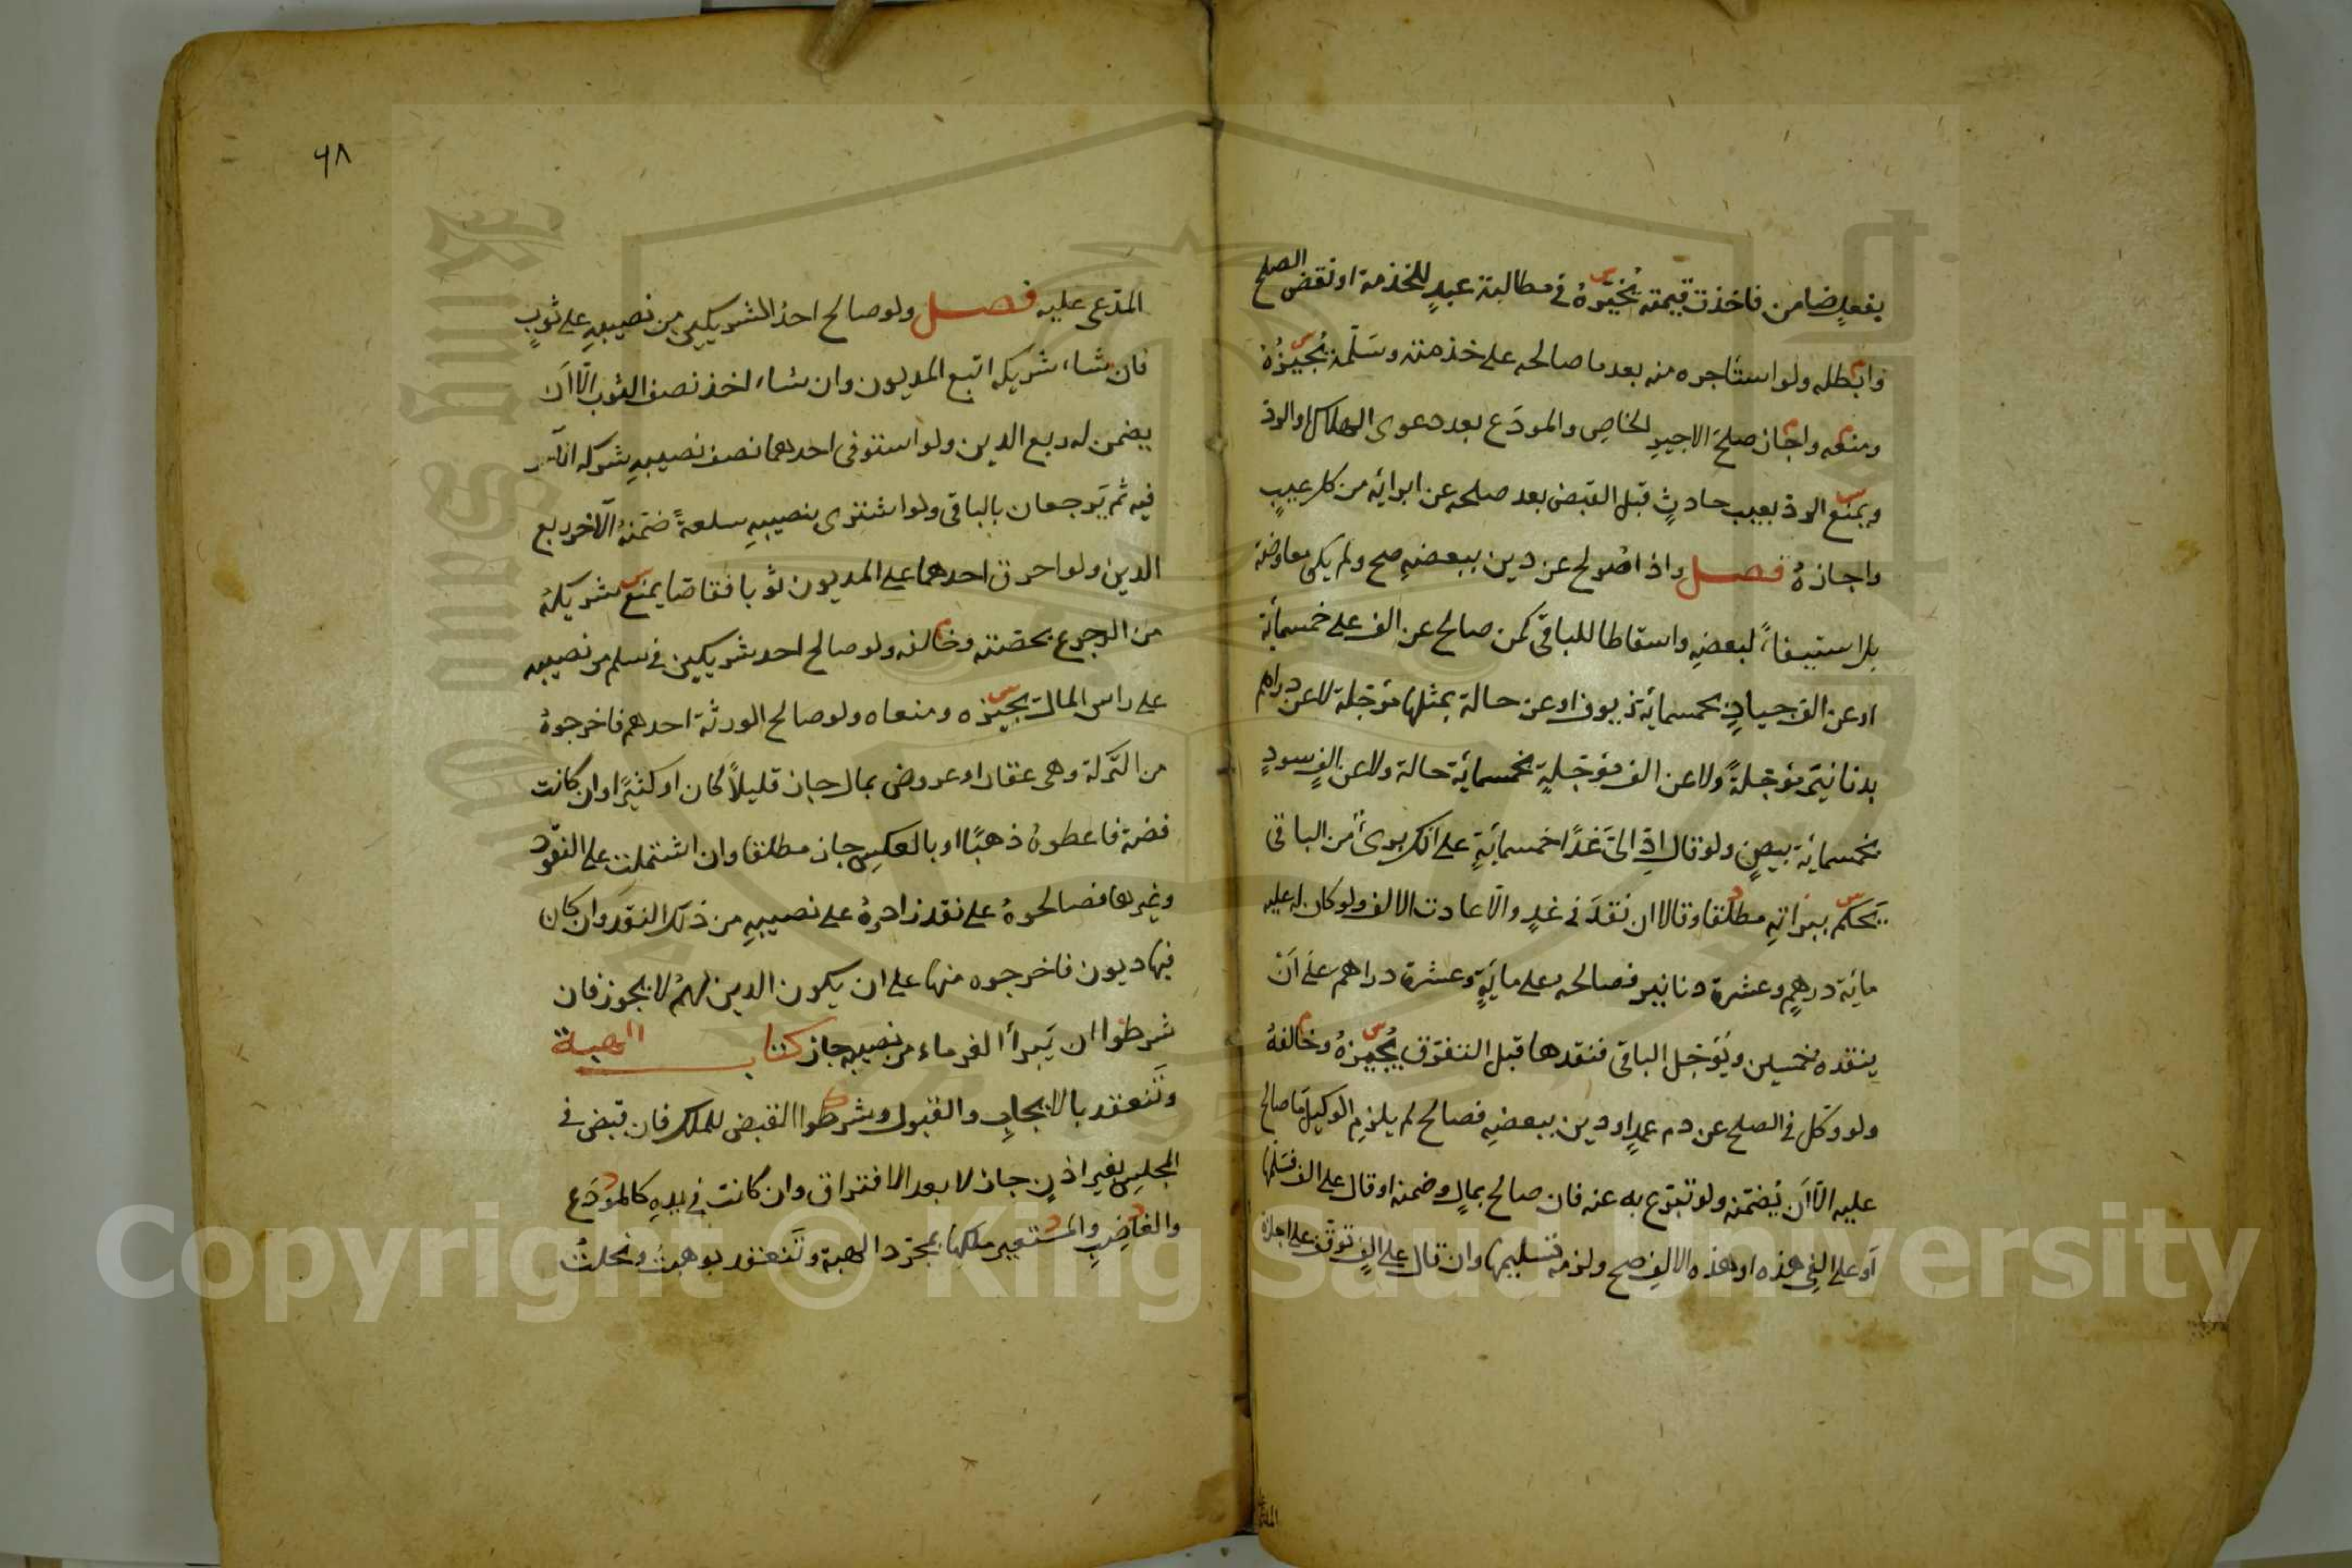 بفعلٍ ضامن فاخذت قيمته يُخيّرهُ في مطالبة عبدٍ للخدمة او نقض الصلح
وابطله ولو استأجره منه بعد ما صالحه على خدمته وسلّمه يُجيزُهُ
ومنعه واجاز صلح الاجيرِ الخاصِ والمودَع بعد دعوى الهلاك او الرد
ويمنع الرد بعيب حادثٍ قبل القبض بعد صلحه عن ابرائه من كل عيبٍ
واجازهُ فصل واذا صُولح عن دين ببعضهِ صح ولم يكن معاوضة
بل استيفاءً لبعضهِ واسقاطا للباقي كمن صالح عن الف على خمسمائة
او عن الف جيادٍ بخمسمائة زيوف او عن حالة بمثلها مؤجّلة لا عن دراهم
بدنانيرَ مؤجّلةً ولا عن الف مؤجّلةٍ بخمسمائة حالة ولا عن الفٍ سودٍ
بخمسمائة بيضٍ ولو قال ادِّ اليَّ غدًا خمسمائةٍ على انك برئ من الباقي
يَحكم ببراتهِ مطلقا وقالا ان نقدَ في غدٍ والّا عادت الالف ولو كان له عليه
مائة درهمٍ وعشرة دنانير فصالحه على مائةٍ وعشرة دراهم على اَنْ
ينقده خمسين ويُؤجّل الباقي فنقدها قبل التفرّق يُجيزهُ وخالفهُ
ولو وكّل في الصلح عن دم عمدٍ او دين ببعضهِ فصالح لم يلزم الوكيلَ ما صالح
عليه الّا اَن يُضمّنه ولو تبرّع به عنه فان صالح بمالٍ وضمنه او قال على الف فسلّمها
اَو على الفي هذه او هذه الالفِ صح ولزمه تسليمها وان قال على الفٍ توقّف على اجازة
٦٨
المدّعى عليه فصل ولو صالح احد الشريكين من نصيبهِ على ثوبٍ
فان شاء شريكه اتبع المديون وان شاء اخذ نصف الثوب الّا اَن
يضمن له ربع الدين ولو استوفى احدهما نصف نصيبهِ شركه الآخر
فيه ثم يَرجعان بالباقي ولو اشترى بنصيبهِ سلعةً ضمّنهُ الآخر ربع
الدين ولو احرق احدهما على المديون ثوبا فقاصّا يمنع شريكهُ
من الرجوع بحصّته وخالفه ولو صالح احد شريكين في سلم من نصيبه
على راس المال يجيزه ومنعاه ولو صالح الورثة احدهم فاخرجوهُ
من التّركة وهى عقار او عروض بمال جاز قليلاً كان او كثيرًا وان كانت
فضة فاعطوهُ ذهبًا او بالعكسِ جاز مطلقا وان اشتملت على النقود
وغيرها فصالحوهُ على نقد زادوهُ على نصيبهِ من ذلك النقد وان كان
فيها ديون فاخرجوه منها على ان يكون الدين لهمُ لا يجوز فان
شرطوا ان يَبرأ الغرماء من نصيبه جاز كتاب الهبة
وتَنعقد بالايجابِ والقبول وشرطوا القبض للملك فان قبض في
المجلسِ بغير اذنٍ جاز لا بعد الافتراق وان كانت في يدهِ كالمودَع
والغاصِبِ والمستعير ملكها بمجرّد الهبة وتَنعقد بوهبتُ ونحلتُ